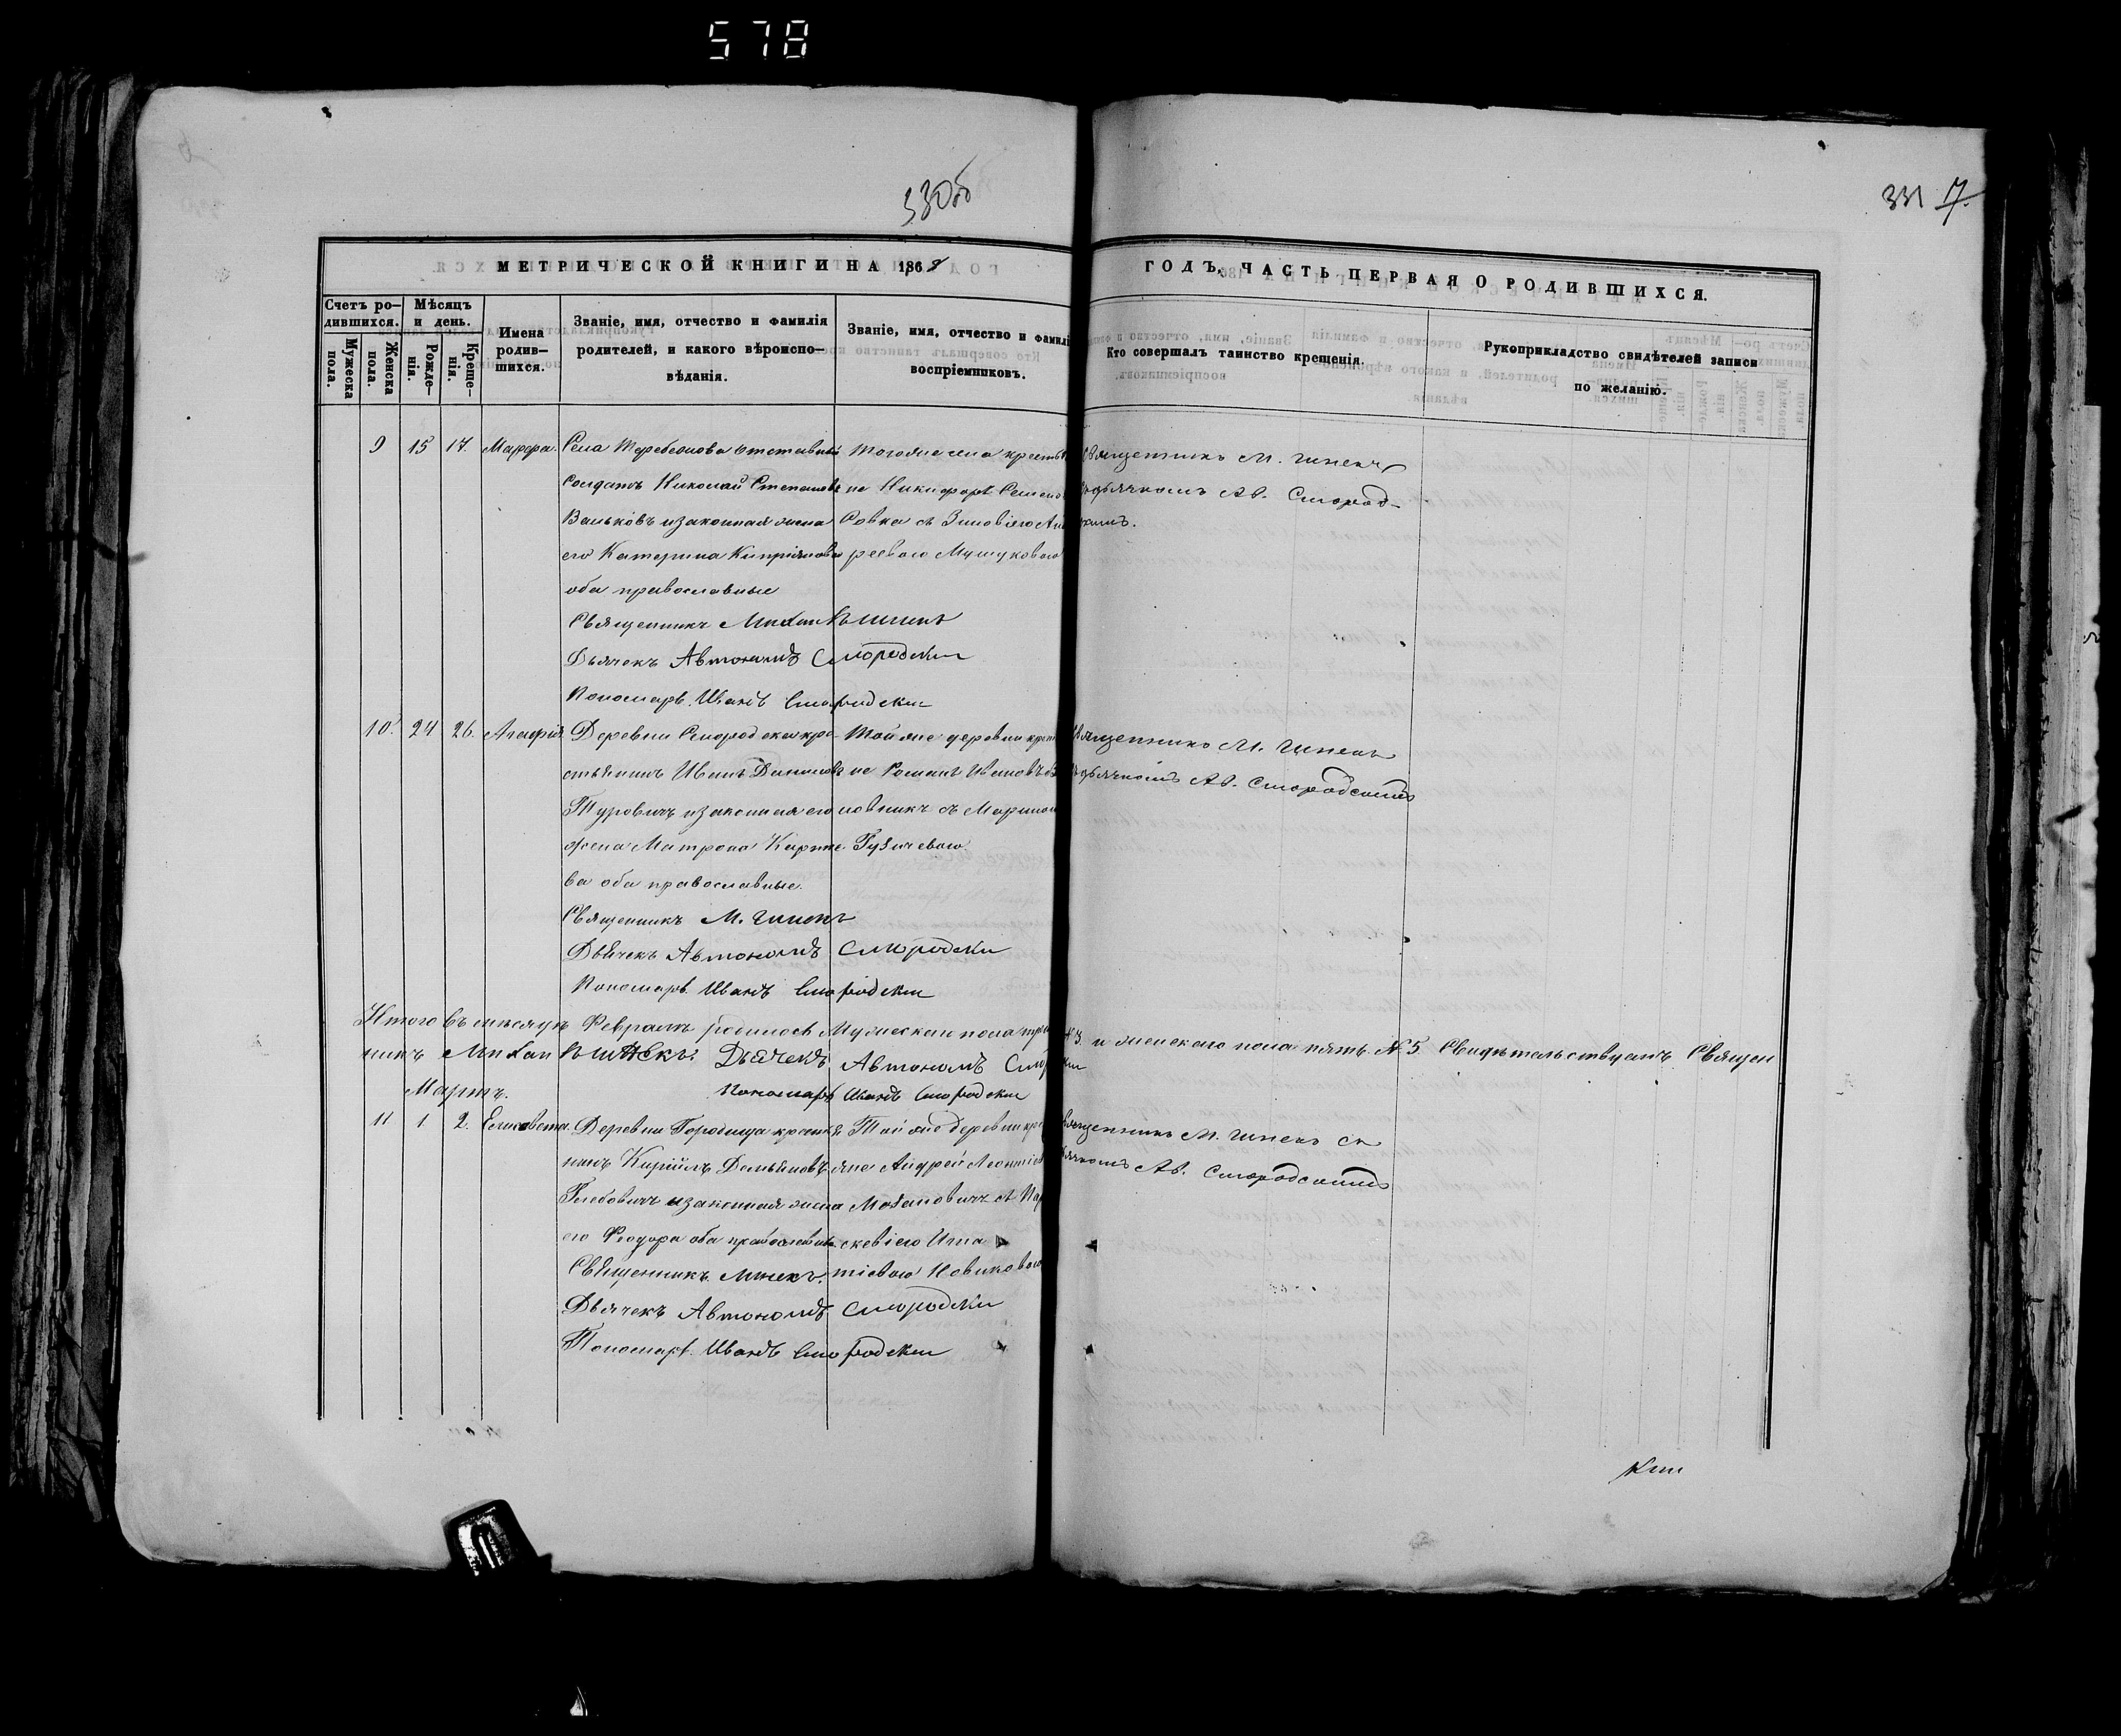 578
330об
331 17.
МЕТРИЧЕСКОЙ КНИГИ НА 1868
ГОДЪ, ЧАСТЬ ПЕРВАЯ О РОДИВШИХСЯ.
Счетъ родившихся.
Мужеска пола.
Женска пола.
Мѣсяцъ и день.
Рожденія.
Крещенія.
Имена родившихся.
Званіе, имя, отчество и фамилія
родителей, и какого вѣроиспо-
вѣданія.
Званіе, имя, отчество и фамилі
воспріемниковъ.
Кто совершалъ таинство крещенія.
Рукоприкладство свидѣтелей записи
по желанію.
9 15 17. Марфа.
Села Теребежова отставный
солдатъ Николай Степановъ
Ваньковъ и законная жена
его Катерина Кипріянова
оба православные
Священникъ
Дьячекъ Автономъ Смородски
Пономарь Иванъ Смородски
Тогоже села крестья
не Никифоръ Семено
Совка съ Зиновіею Анд
реевою Мушуковою
Священникъ М.
дьячкомъ Ав. Смород-
скимъ.
10. 24 26. Агафія
Деревни Смородска кре-
стьянинъ Иванъ Даниловъ
Туровичъ и законная его
жена Матрона Карпо-
ва оба православные.
Священникъ М.
Дьячекъ Автономъ Смородски
Пономарь Иванъ Смородски
Той же деревни крест
не Романъ Ивановъ
новникъ съ Мариною
Гузичевою
Священникъ М.
дьячкомъ Ав. Смородскимъ
Итого въ мѣсяцѣ Февралѣ родилось Мужескаго пола три №3 и женскаго пола пять №5 Свидѣтельствуютъ Священ
никъ Дьячекъ Автономъ Смородски
Пономарь Иванъ Смородски
Мартъ.
11 1 2. Елисавета.
Деревни Городища крестья
нинъ Кирилъ Демьяновъ
Глебовичъ и законная жена
его Феодора оба православные
Священникъ
Дьячекъ Автономъ Смородски
Пономарь Иванъ Смородски
Той же деревни кре
яне Андрей Леонтіев
съ Пар
скевіею Игна
тіевою Новиковою
Священникъ М. съ
дьячкомъ Ав. Смородскимъ